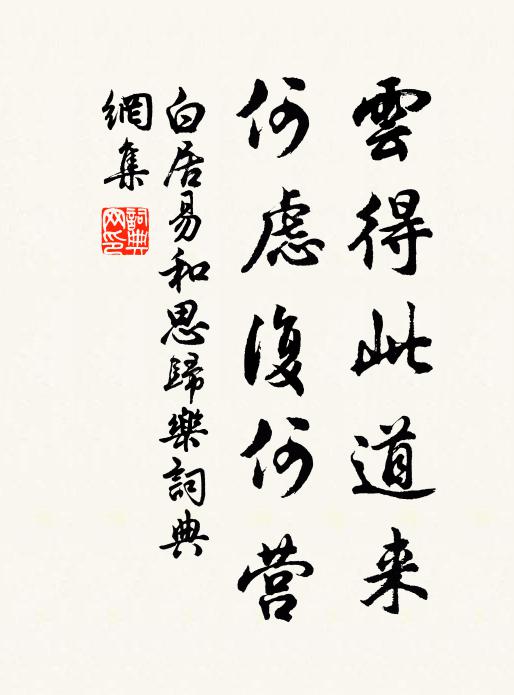 雲得此道来
何慮復何营
白居易和思歸樂詞典
網集
詞典網印